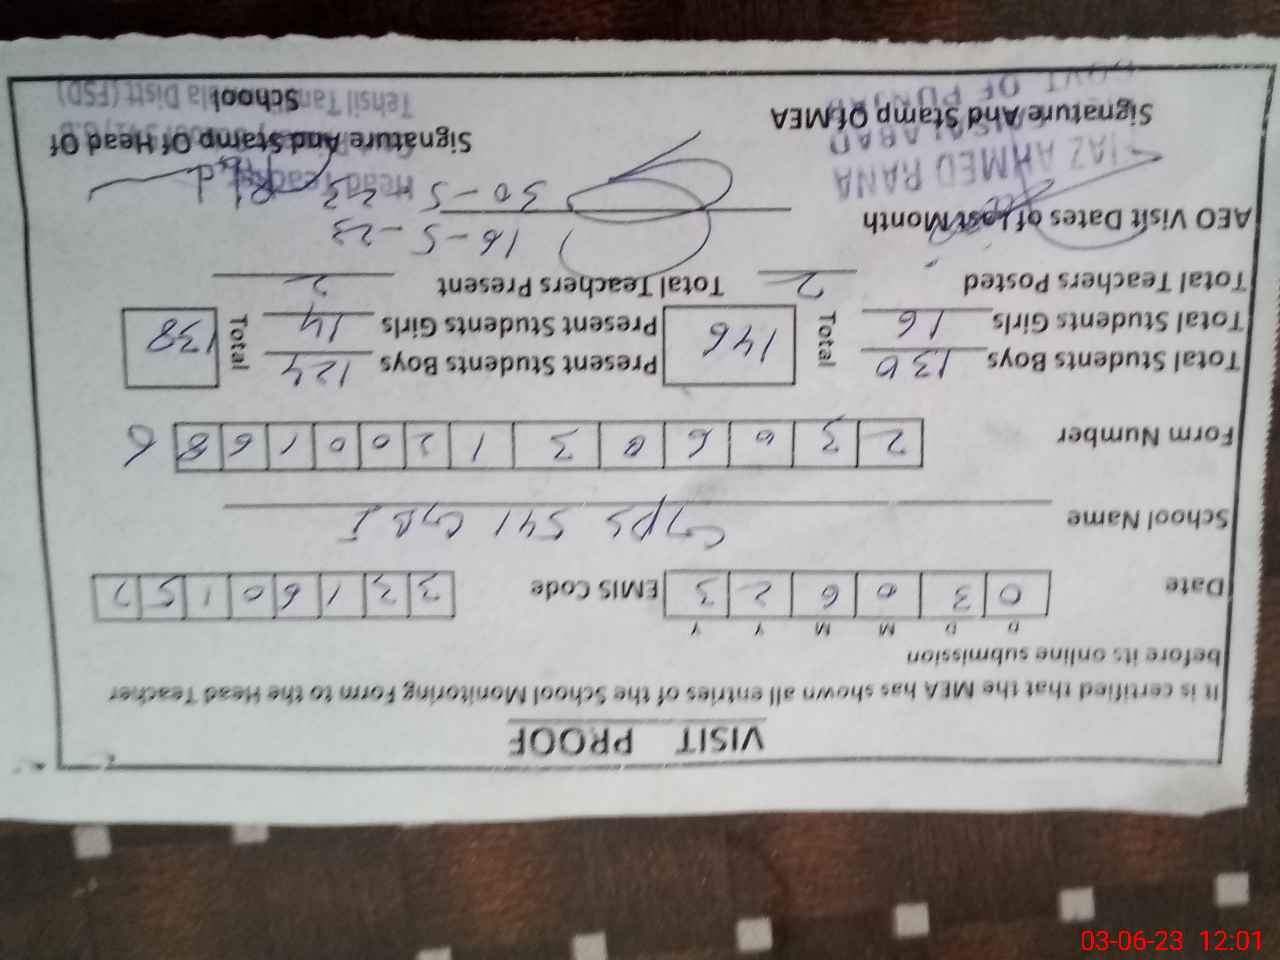 VISIT PROOF
It is certified that the MEA has shown all entries of the School Monitoring Form to the Head Teacher
before its online submission
D D M M Y Y
Date 0 3 0 6 2 3 EMIS Code 3 3 1 6 0 1 5 7
School Name GPS 541 GB I
Form Number 2 3 0 6 0 3 1 2 0 0 1 6 8 6
Total Students Boys 130 Total 146 Present Students Boys 124 Total 138
Total Students Girls 16 Present Students Girls 14
Total Teachers Posted 2 Total Teachers Present 2
16-5-23
AEO Visit Dates of Last Month 30-5-23
IAZ AHMED RANA Head Teacher
FAISALABAD
Signature And Stamp Of MEA Signature And Stamp Of Head Of School
GOVT OF PUNJAB Tehsil Tandla Distt (FSD)
03-06-23 12:01